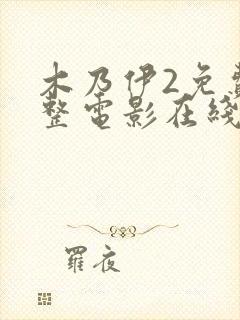 木乃伊2免费
整电影在线
羅夜